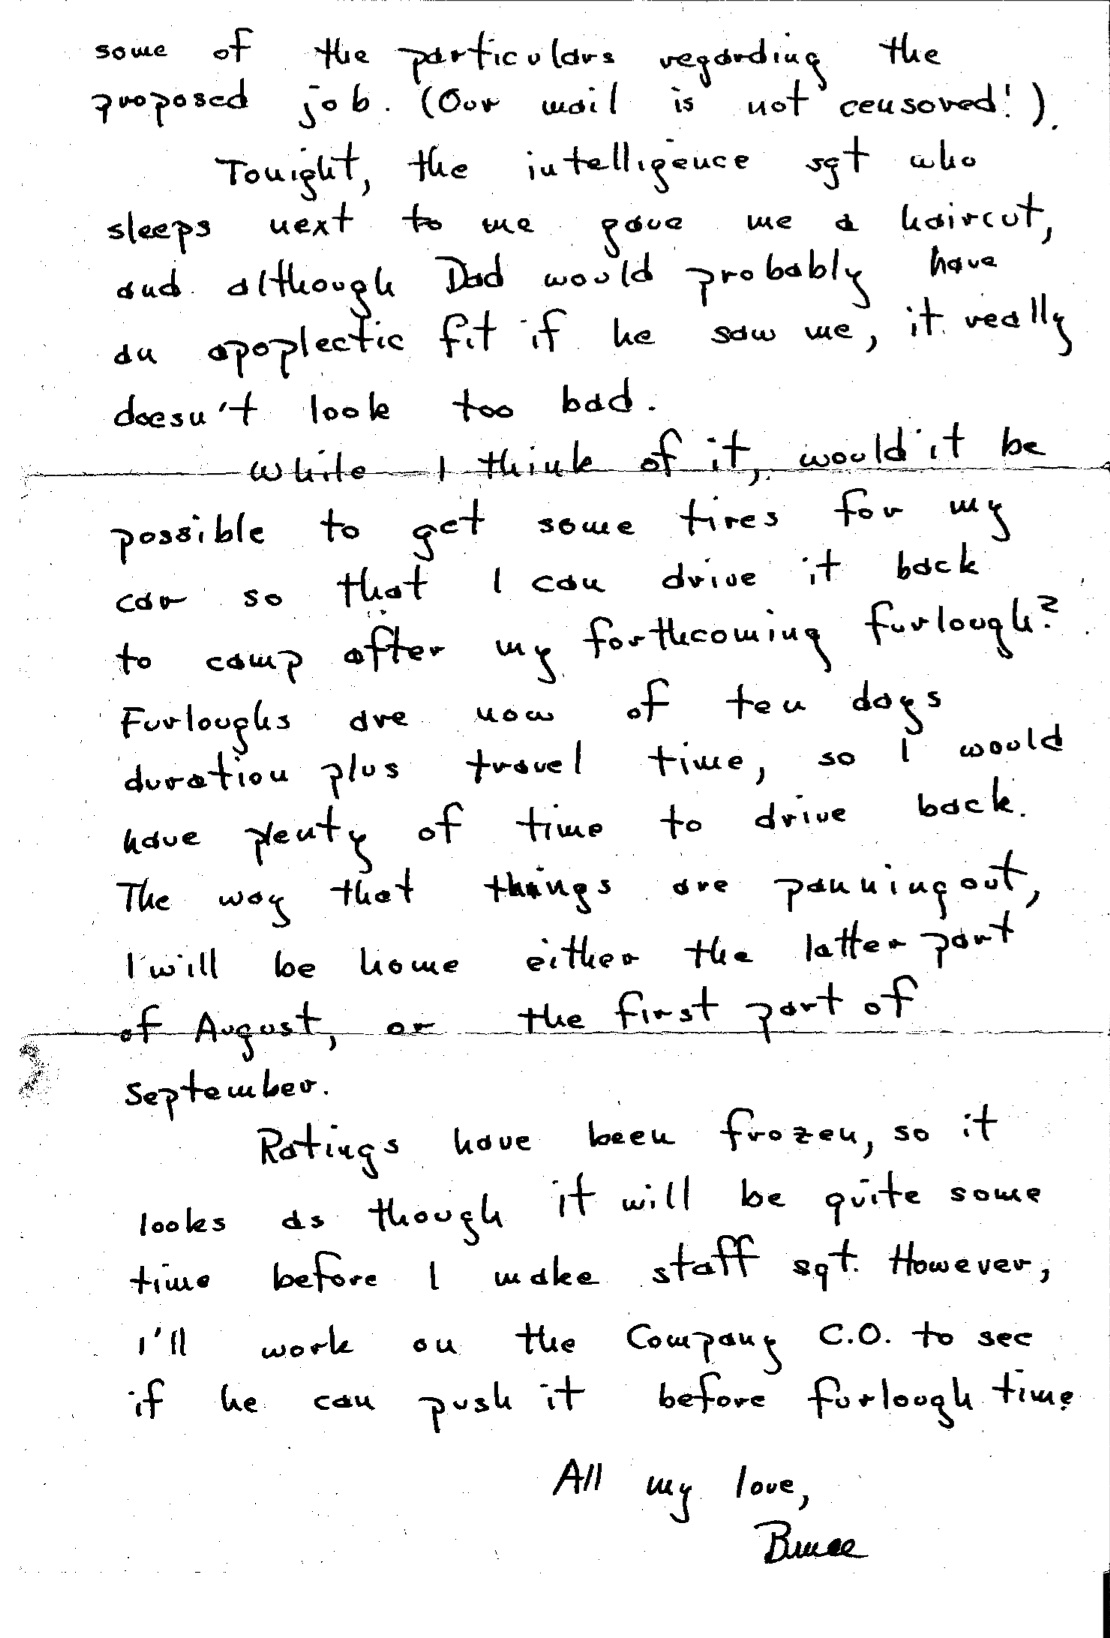 some of the particulars regarding the
proposed job. (Our mail is not censored!).
Tonight, the intelligence sgt who
sleeps next to me gave me a haircut,
and although Dad would probably have
an apoplectic fit if he saw me, it really
doesn't look too bad.
While I think of it, would it be
possible to get some tires for my
car so that I can drive it back
to camp after my forthcoming furlough?
Furloughs are now of ten days
duration plus travel time, so I would
have plenty of time to drive back.
The way that things are panning out,
I will be home either the latter part
of August, or the first part of
September.
Ratings have been frozen, so it
looks as though it will be quite some
time before I make staff sgt. However,
I'll work on the Company C.O. to see
if he can push it before furlough time.
All my love,
Bruce